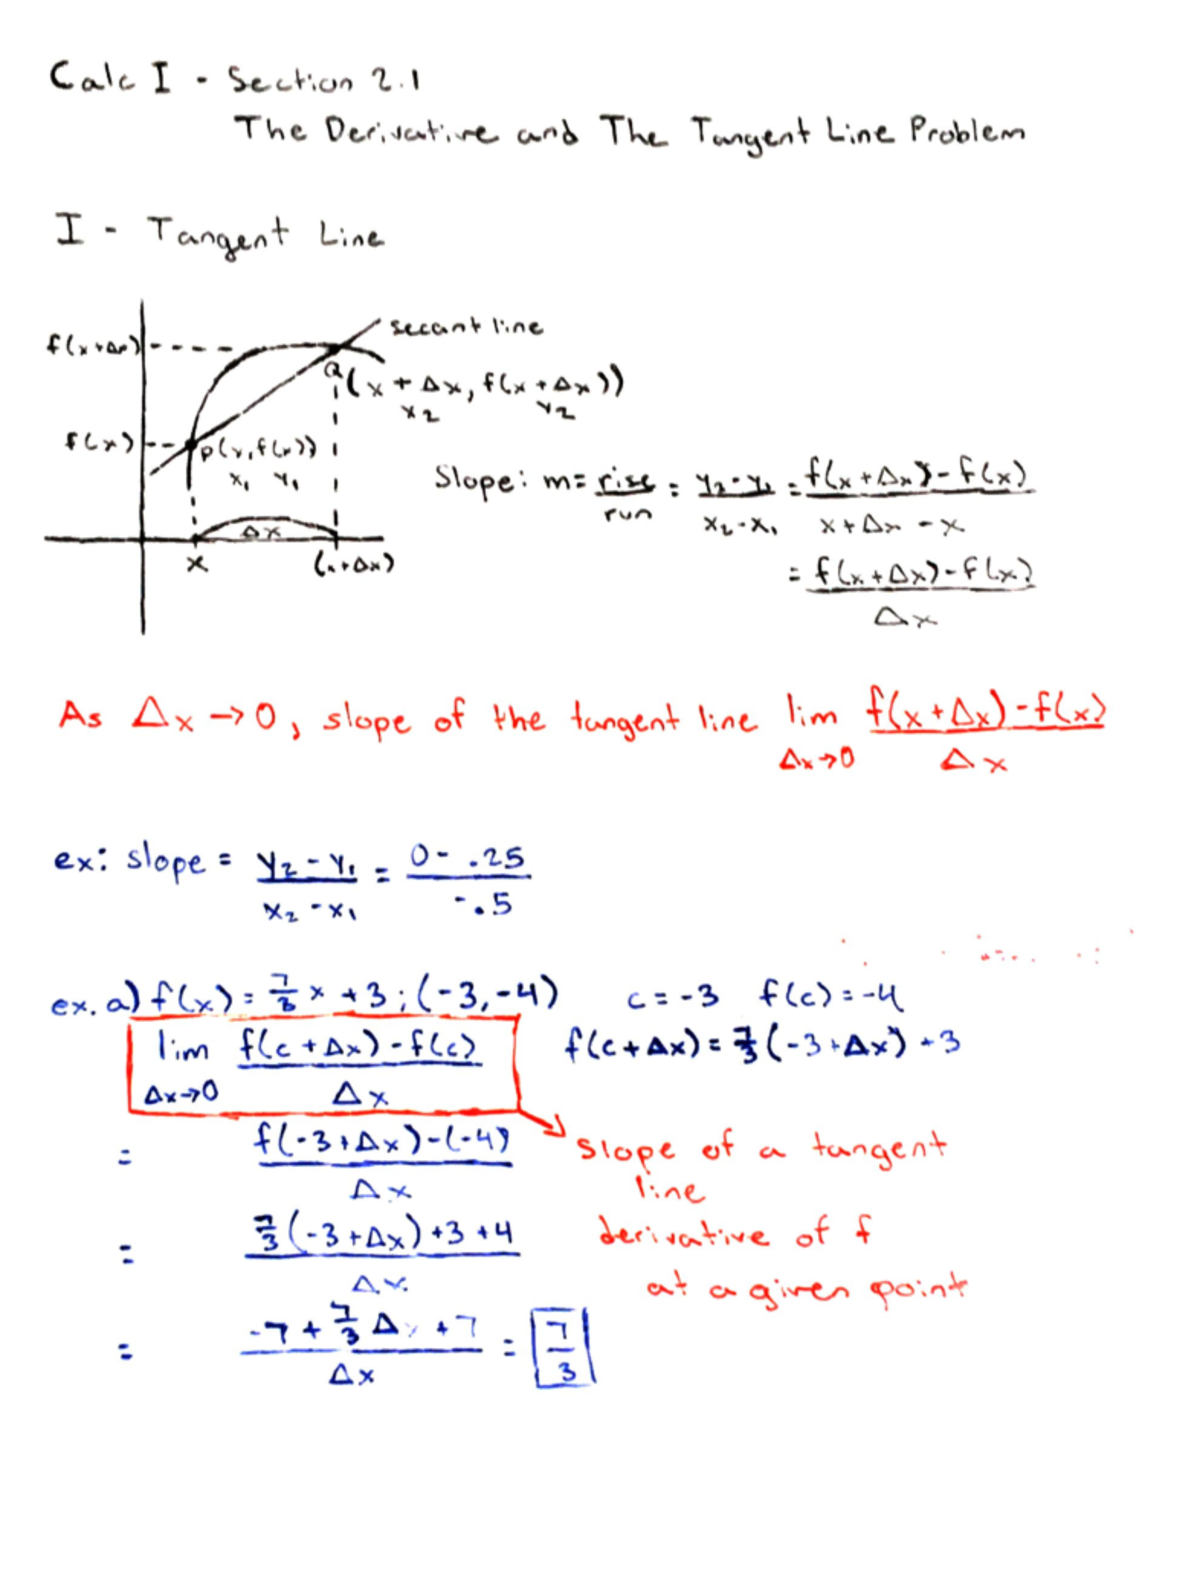 Calc I - Section 2.1
The Derivative and The Tangent Line Problem
I - Tangent Line
f(x+Δx)
secant line
Q(x + Δx, f(x + Δx))
x₂ y₂
f(x)
P(x, f(x))
x₁ y₁
Δx
x (x+Δx)
Slope: m = rise/run = (y₂ - y₁)/(x₂ - x₁) = (f(x + Δx) - f(x))/(x + Δx - x)
= (f(x + Δx) - f(x))/Δx
As Δx → 0, slope of the tangent line lim Δx→0 (f(x + Δx) - f(x))/Δx
ex: slope = (y₂ - y₁)/(x₂ - x₁) = (0 - .25)/(-.5)
ex. a) f(x) = 7/3 x + 3 ; (-3, -4) c = -3 f(c) = -4
lim Δx→0 (f(c + Δx) - f(c))/Δx f(c + Δx) = 7/3 (-3 + Δx) + 3
= (f(-3 + Δx) - (-4))/Δx
slope of a tangent
line
= (7/3 (-3 + Δx) + 3 + 4)/Δx
derivative of f
at a given point
= (-7 + 7/3 Δx + 7)/Δx = 7/3